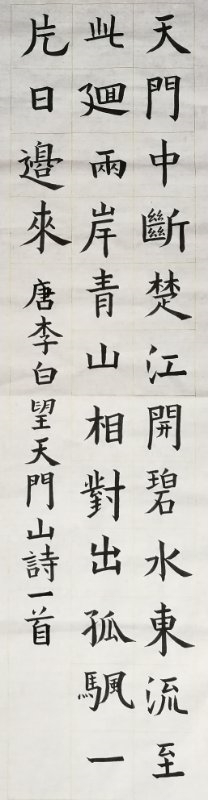 天門中斷楚江開碧水東流至
此廻兩岸青山相對出孤颿一
片日邊來 唐李白望天門山詩一首